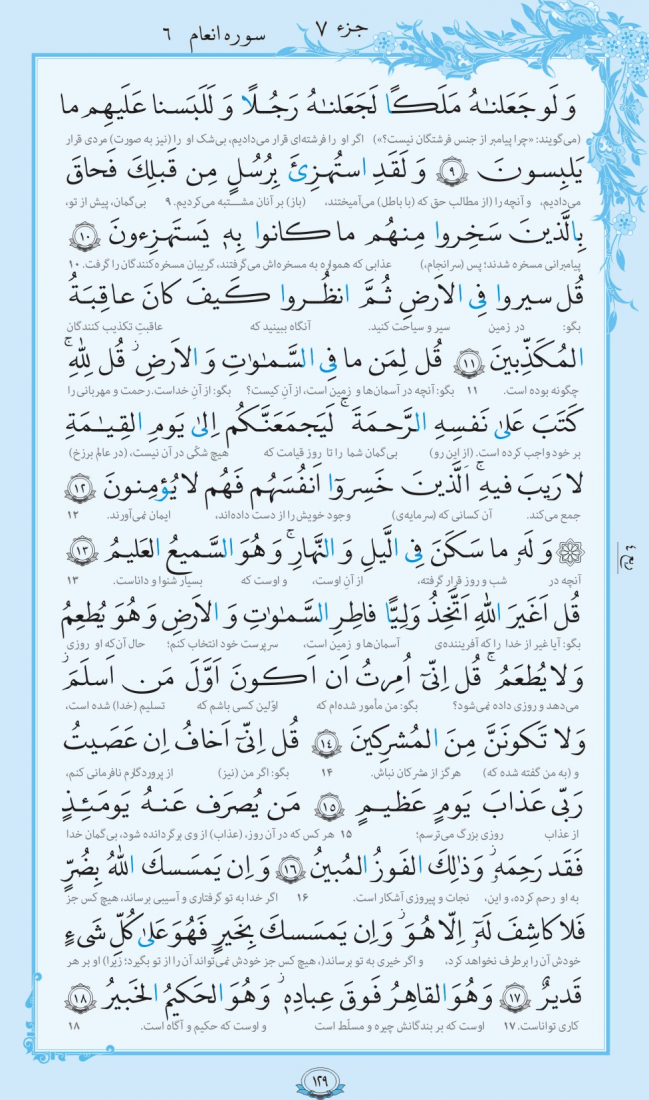 جزء ۷
سوره انعام ۶
وَ لَو جَعَلنـٰهُ مَلَكًا لَجَعَلنـٰهُ رَجُلًا وَ لَلَبَسنا عَلَيهِم ما
(می‌گویند: «چرا پیامبر از جنس فرشتگان نیست؟») اگر او را فرشته‌ای قرار می‌دادیم، بی‌شک او را (نیز به صورت) مردی قرار
يَلبِسونَ ۹ وَ لَقَدِ استُهزِئَ بِرُسُلٍ مِن قَبلِكَ فَحاقَ
می‌دادیم، و آنچه را (از مطالب حق که (با باطل) می‌آمیختند، (باز) بر آنان مشتبه می‌کردیم. ۹ بی‌گمان، پیش از تو،
بِالَّذينَ سَخِروا مِنهُم ما كانوا بِهٖ يَستَهزِءونَ ۱۰
پیامبرانی مسخره شدند؛ پس (سرانجام،) عذابی که همواره به مسخره‌اش می‌گرفتند، گریبان مسخره‌کنندگان را گرفت. ۱۰
قُل سيروا فِى الاَرضِ ثُمَّ انظُروا كَيفَ كانَ عاقِبَةُ
بگو: در زمین سیر و سیاحت کنید. آنگاه ببینید که عاقبتِ تکذیب کنندگان
المُكَذِّبينَ ۱۱ قُل لِمَن ما فِى السَّمـٰوٰتِ وَ الاَرضِ ۖ قُل لِلّٰهِ ۚ
چگونه بوده است. ۱۱ بگو: آنچه در آسمان‌ها و زمین است، از آنِ کیست؟ بگو: از آنِ خداست. رحمت و مهربانی را
كَتَبَ عَلىٰ نَفسِهِ الرَّحمَةَ ۚ لَيَجمَعَنَّكُم اِلىٰ يَومِ القِيـٰمَةِ
بر خود واجب کرده است. (از این رو) بی‌گمان شما را تا روز قیامت که هیچ شکّی در آن نیست، (در عالم برزخ)
لا رَيبَ فيهِ ۚ اَلَّذينَ خَسِروٓا اَنفُسَهُم فَهُم لا يُؤمِنونَ ۱۲
جمع می‌کند. آن کسانی که (سرمایه‌ی) وجود خویش را از دست داده‌اند، ایمان نمی‌آورند. ۱۲
وَ لَهٗ ما سَكَنَ فِى الَّيلِ وَ النَّهارِ ۚ وَ هُوَ السَّميعُ العَليمُ ۱۳
آنچه در شب و روز قرار گرفته، از آنِ اوست، و اوست که بسیار شنوا و داناست. ۱۳
قُل اَغَيرَ اللّٰهِ اَتَّخِذُ وَلِيًّا فاطِرِ السَّمـٰوٰتِ وَ الاَرضِ وَ هُوَ يُطعِمُ
بگو: آیا غیر از خدا را که آفریننده‌ی آسمان‌ها و زمین است، سرپرست خود انتخاب کنم؛ حال آن‌که او روزی
وَ لا يُطعَمُ ۗ قُل اِنّىٓ اُمِرتُ اَن اَكونَ اَوَّلَ مَن اَسلَمَ ۖ
می‌دهد و روزی داده نمی‌شود؟ بگو: من مأمور شده‌ام که اوّلین کسی باشم که تسلیم (خدا) شده است،
وَ لا تَكونَنَّ مِنَ المُشرِكينَ ۱۴ قُل اِنّىٓ اَخافُ اِن عَصَيتُ
و (به من گفته شده که) هرگز از مشرکان نباش. ۱۴ بگو: اگر من (نیز) از پروردگارم نافرمانی کنم،
رَبّى عَذابَ يَومٍ عَظيمٍ ۱۵ مَن يُصرَف عَنهُ يَومَئِذٍ
از عذاب روزی بزرگ می‌ترسم؛ ۱۵ هر کس که در آن روز، (عذاب) از وی برگردانده شود، بی‌گمان خدا
فَقَد رَحِمَهٗ ۚ وَ ذٰلِكَ الفَوزُ المُبينُ ۱۶ وَ اِن يَمسَسكَ اللّٰهُ بِضُرٍّ
به او رحم کرده، و این، نجات و پیروزی آشکار است. ۱۶ اگر خدا به تو گرفتاری و آسیبی برساند، هیچ کس جز
فَلا كاشِفَ لَهٗٓ اِلّا هُوَ ۖ وَ اِن يَمسَسكَ بِخَيرٍ فَهُوَ عَلىٰ كُلِّ شَىءٍ
خودش آن را برطرف نخواهد کرد، و اگر خیری به تو برساند(، هیچ کس جز خودش نمی‌تواند آن را از تو بگیرد؛ زیرا) او بر هر
قَديرٌ ۱۷ وَ هُوَ القاهِرُ فَوقَ عِبادِهٖ ۚ وَ هُوَ الحَكيمُ الخَبيرُ ۱۸
کاری تواناست. ۱۷ اوست که بر بندگانش چیره و مسلّط است و اوست که حکیم و آگاه است. ۱۸
۱۲۹